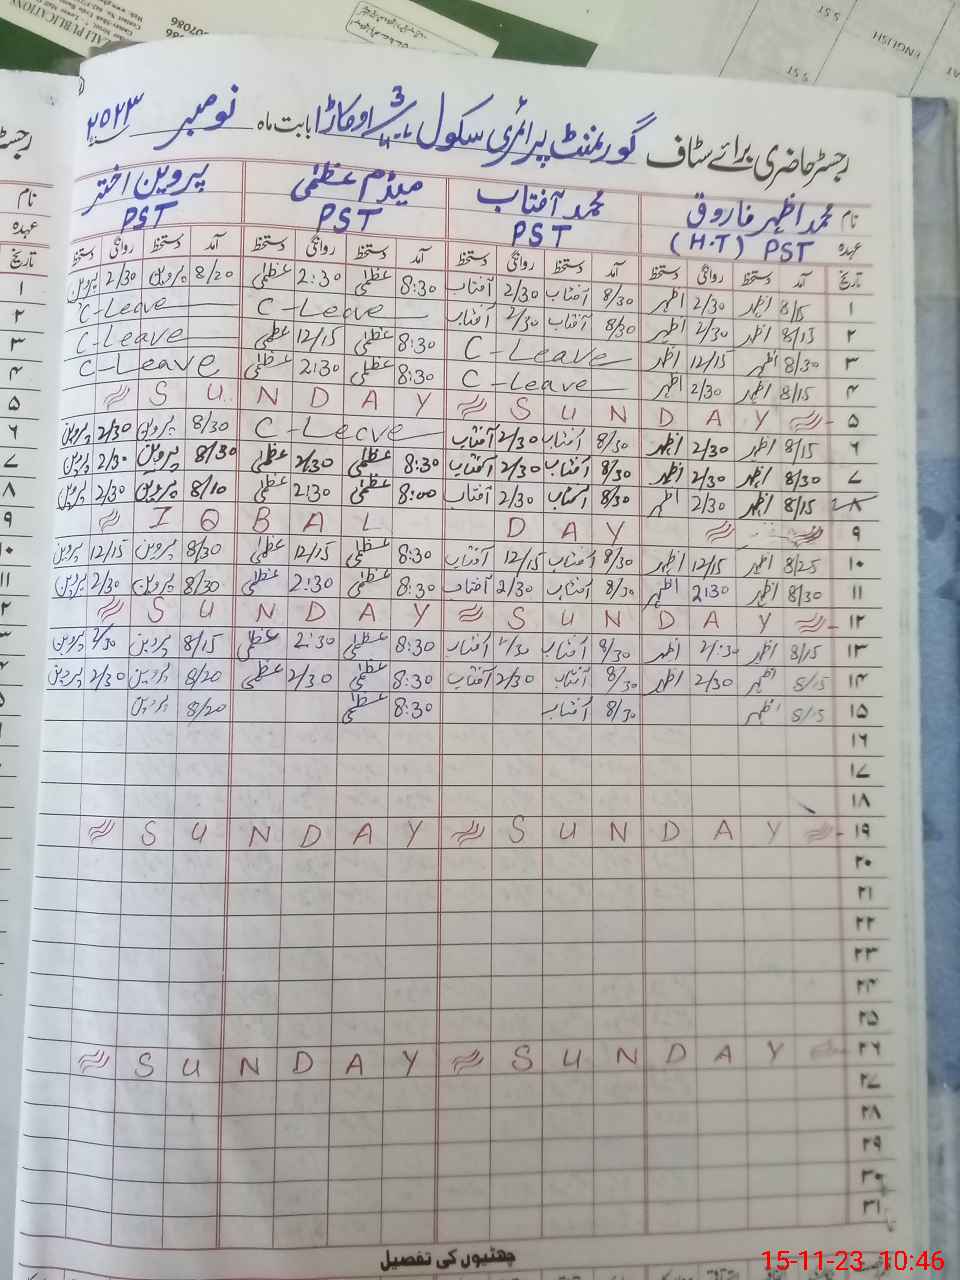 رجسٹر حاضری برائے سٹاف گورنمنٹ پرائمری سکول 3/4-L اوکاڑا بابت ماہ نومبر ۲۰۲۳
نام محمد اظہر فاروق محمد آفتاب میڈم عظمٰی پروین اختر
عہدہ PST (H.T) PST PST PST
تاریخ آمد دستخط روانگی دستخط آمد دستخط روانگی دستخط آمد دستخط روانگی دستخط آمد دستخط روانگی دستخط
۱ 8/15 اظہر 2/30 اظہر 8/30 آفتاب 2/30 آفتاب 8:30 عظمٰی 2:30 عظمٰی 8/20 پروین 2/30 پروین
۲ 8/15 اظہر 2/30 اظہر 8/30 آفتاب 2/30 آفتاب C-Leave C-Leave
۳ 8/30 اظہر 12/15 اظہر C-Leave 8:30 عظمٰی 12/15 عظمٰی C-Leave
۴ 8/15 اظہر 2/30 اظہر C-Leave 8:30 عظمٰی 2:30 عظمٰی C-Leave
۵ SUNDAY SUNDAY
۶ 8/15 اظہر 2/30 اظہر 8/30 آفتاب 2/30 آفتاب C-Leave 8/30 پروین 2/30 پروین
۷ 8/30 اظہر 2/30 اظہر 8/30 آفتاب 2/30 آفتاب 8:30 عظمٰی 2/30 عظمٰی 8/30 پروین 2/30 پروین
۸ 8/15 اظہر 2/30 اظہر 8/30 آفتاب 2/30 آفتاب 8:00 عظمٰی 2:30 عظمٰی 8/10 پروین 2/30 پروین
۹ IQBAL DAY
۱۰ 8/25 اظہر 12/15 اظہر 8/30 آفتاب 12/15 آفتاب 8:30 عظمٰی 12/15 عظمٰی 8/30 پروین 12/15 پروین
۱۱ 8/30 اظہر 2:30 اظہر 8/30 آفتاب 2/30 آفتاب 8:30 عظمٰی 2:30 عظمٰی 8/30 پروین 2/30 پروین
۱۲ SUNDAY SUNDAY
۱۳ 8/15 اظہر 2:30 اظہر 8/30 آفتاب 2/30 آفتاب 8:30 عظمٰی 2:30 عظمٰی 8/15 پروین 2/30 پروین
۱۴ 8/15 اظہر 2/30 اظہر 8/30 آفتاب 2/30 آفتاب 8:30 عظمٰی 2/30 عظمٰی 8/20 پروین 2/30 پروین
۱۵ 8/15 اظہر 8/30 آفتاب 8:30 عظمٰی 8/20 پروین
۱۶
۱۷
۱۸
۱۹ SUNDAY SUNDAY
۲۰
۲۱
۲۲
۲۳
۲۴
۲۵
۲۶ SUNDAY SUNDAY
۲۷
۲۸
۲۹
۳۰
۳۱
چھٹیوں کی تفصیل
15-11-23 10:46